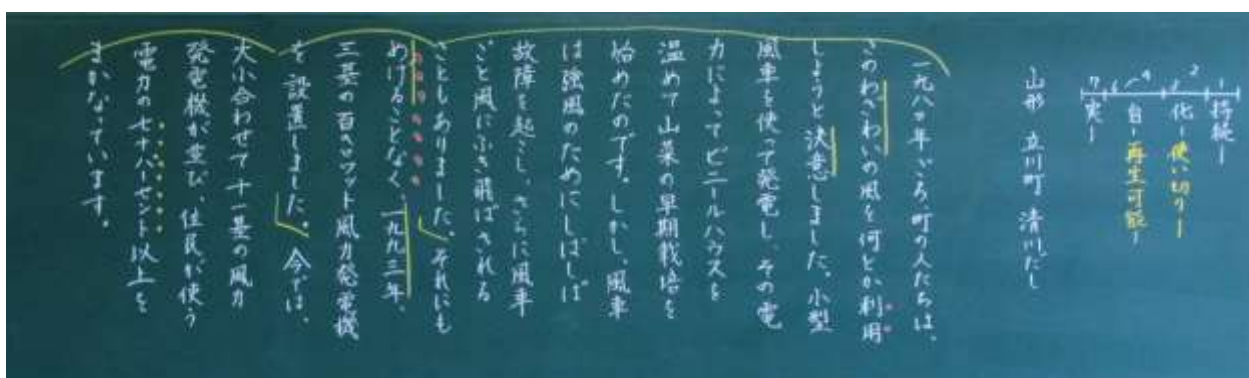 1 持続ー
2 化ー使い切りー
4 自ー再生可能ー
7 実ー
山形 立川町 清川だし
一九八〇年ごろ、町の人たちは、
このわざわいの風を何とか利用
しようと決意しました。小型
風車を使って発電し、その電
力によってビニールハウスを
温めて山菜の早期栽培を
始めたのです。しかし、風車
は強風のためにしばしば
故障を起こし、さらに風車
ごと風にふき飛ばされる
こともありました。それにも
めげることなく、一九九三年、
三基の百キロワット風力発電機
を設置しました。今では、
大小合わせて十一基の風力
発電機が並び、住民が使う
電力の七十パーセント以上を
まかなっています。